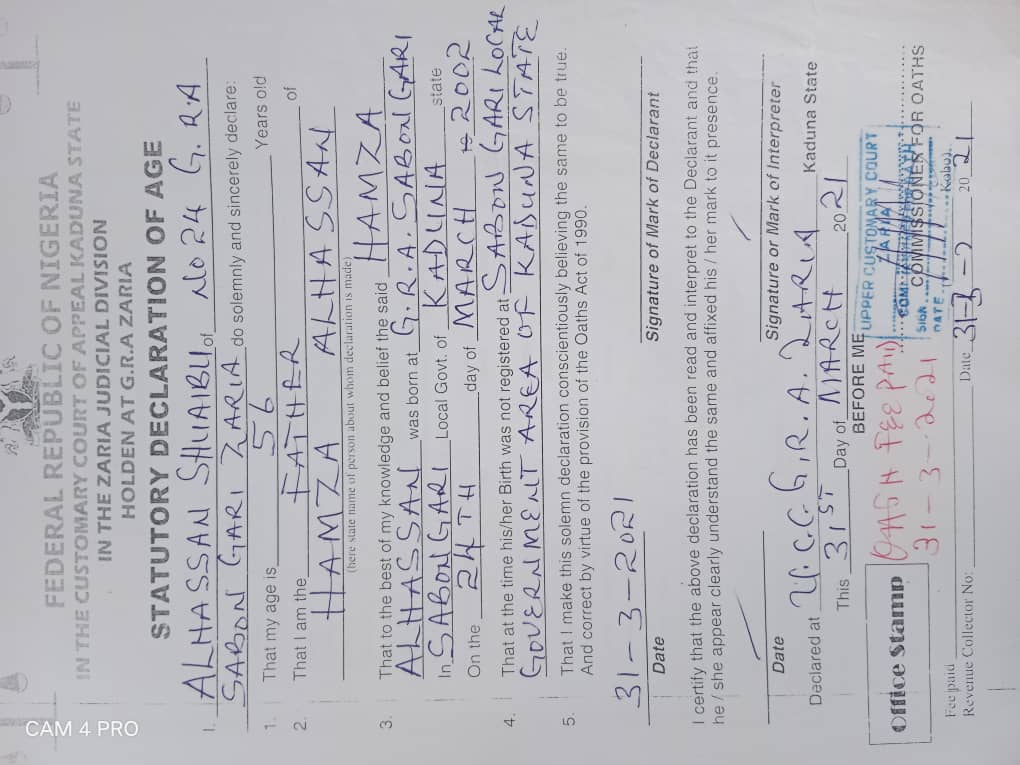 FEDERAL REPUBLIC OF NIGERIA
IN THE CUSTOMARY COURT OF APPEAL KADUNA STATE
IN THE ZARIA JUDICIAL DIVISION
HOLDEN AT G.R.A ZARIA
STATUTORY DECLARATION OF AGE
I. ALHASSAN SHUAIBU of No 24 G.R.A
SABON GARI ZARIA do solemnly and sincerely declare:
1. That my age is 56 Years old
2. That I am the FATHER of
HAMZA ALHASSAN
(here state name of person about whom declaration is made)
3. That to the best of my knowledge and belief the said HAMZA
ALHASSAN was born at G.R.A. SABON GARI
In SABON GARI Local Govt. of KADUNA state
On the 24TH day of MARCH 19 2002
4. That at the time his/her Birth was not registered at SABON GARI LOCAL
GOVERNMENT AREA OF KADUNA STATE
5. That I make this solemn declaration conscientiously believing the same to be true.
And correct by virtue of the provision of the Oaths Act of 1990.
31-3-2021
Date Signature of Mark of Declarant
I certify that the above declaration has been read and interpret to the Declarant and that
he / she appear clearly understand the same and affixed his / her mark to it presence.
Date Signature or Mark of Interpreter
Declared at U.C.C. G.R.A. ZARIA Kaduna State
This 31ST Day of MARCH 2021
BEFORE ME
UPPER CUSTOMARY COURT
ZARIA
SIGN
DATE
COMMISSIONER FOR OATHS
Office Stamp
OATH FEE PAID
31-3-2021
Fee paid Kobo
Revenue Collector No: Date 31-3-2021
CAM 4 PRO